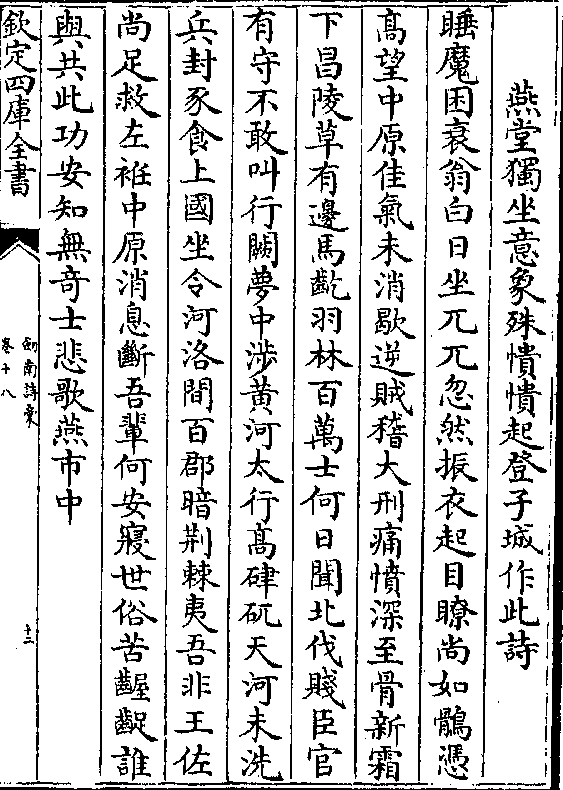 燕堂獨坐意象殊憒憒起登子城作此詩
睡魔困衰翁白日坐兀兀忽然振衣起目瞭尚如鶻憑
高望中原佳氣未消歇逆賊稽大刑痛憤深至骨新霜
下昌陵草有邊馬齕羽林百萬士何日聞北伐賤臣官
有守不敢叫行闕夢中涉黄河太行高硉矹天河未洗
兵封豕食上國坐令河洛間百郡暗荆棘夷吾非王佐
尚足救左袵中原消息斷吾輩何安寢世俗苦齷齪誰
與共此功安知無奇士悲歌燕市中
欽定四庫全書
劎南詩稾
卷十八
十二